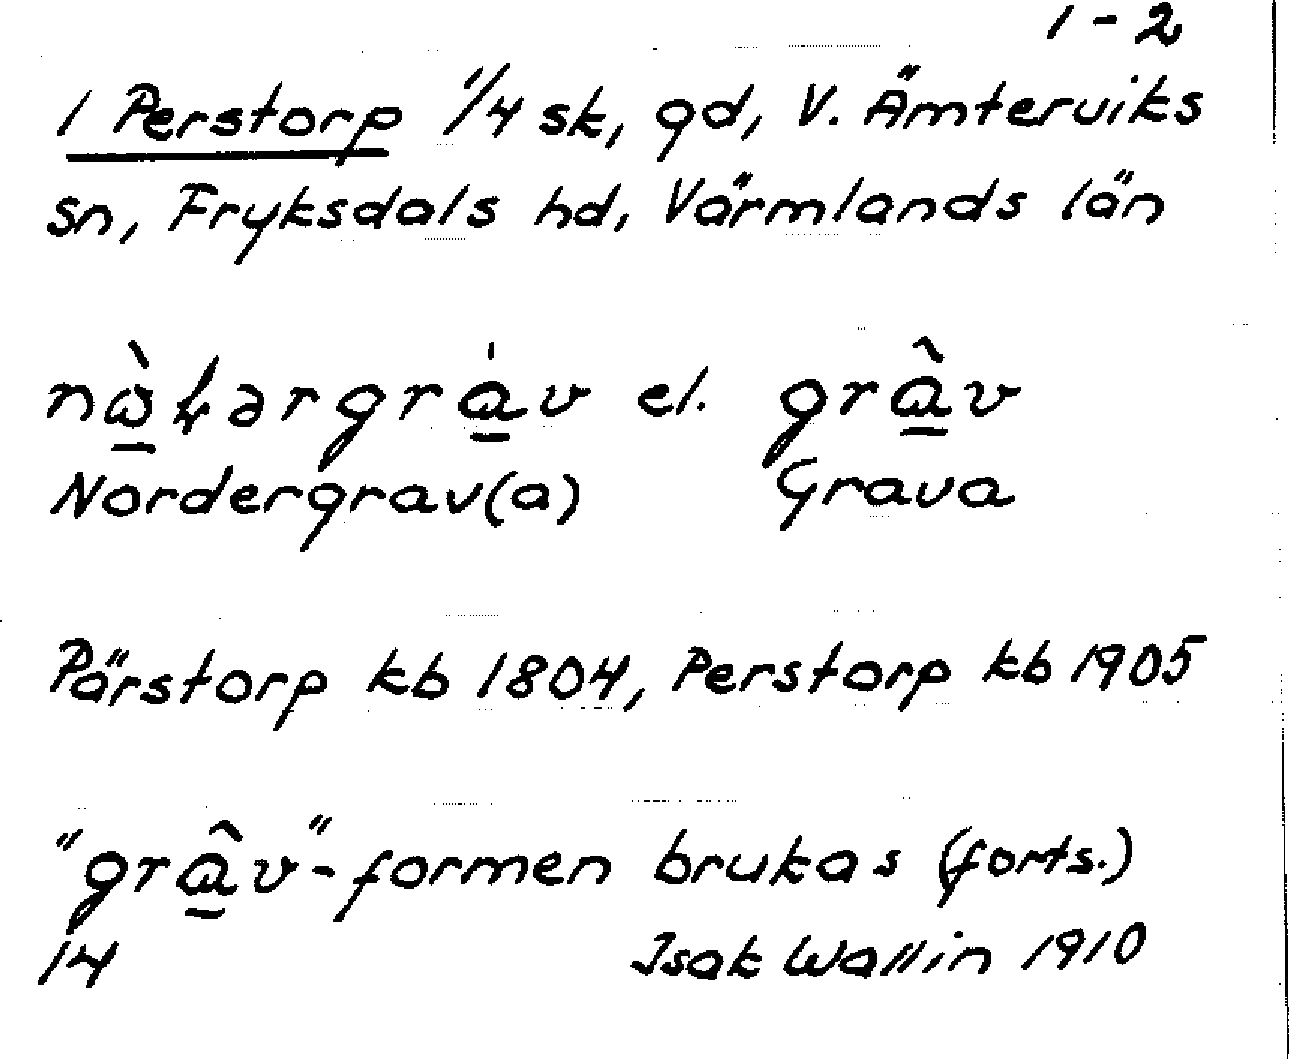 1-2
1 Perstorp 1/4 sk, gd, V. Ämterviks
sn, Fryksdals hd, Värmlands län
el. grâ̱v
Nordergrav(a) Grava
Pärstorp kb 1804, Perstorp kb 1905
"grâ̱v"-formen brukas (forts.)
14 Isak Wallin 1910